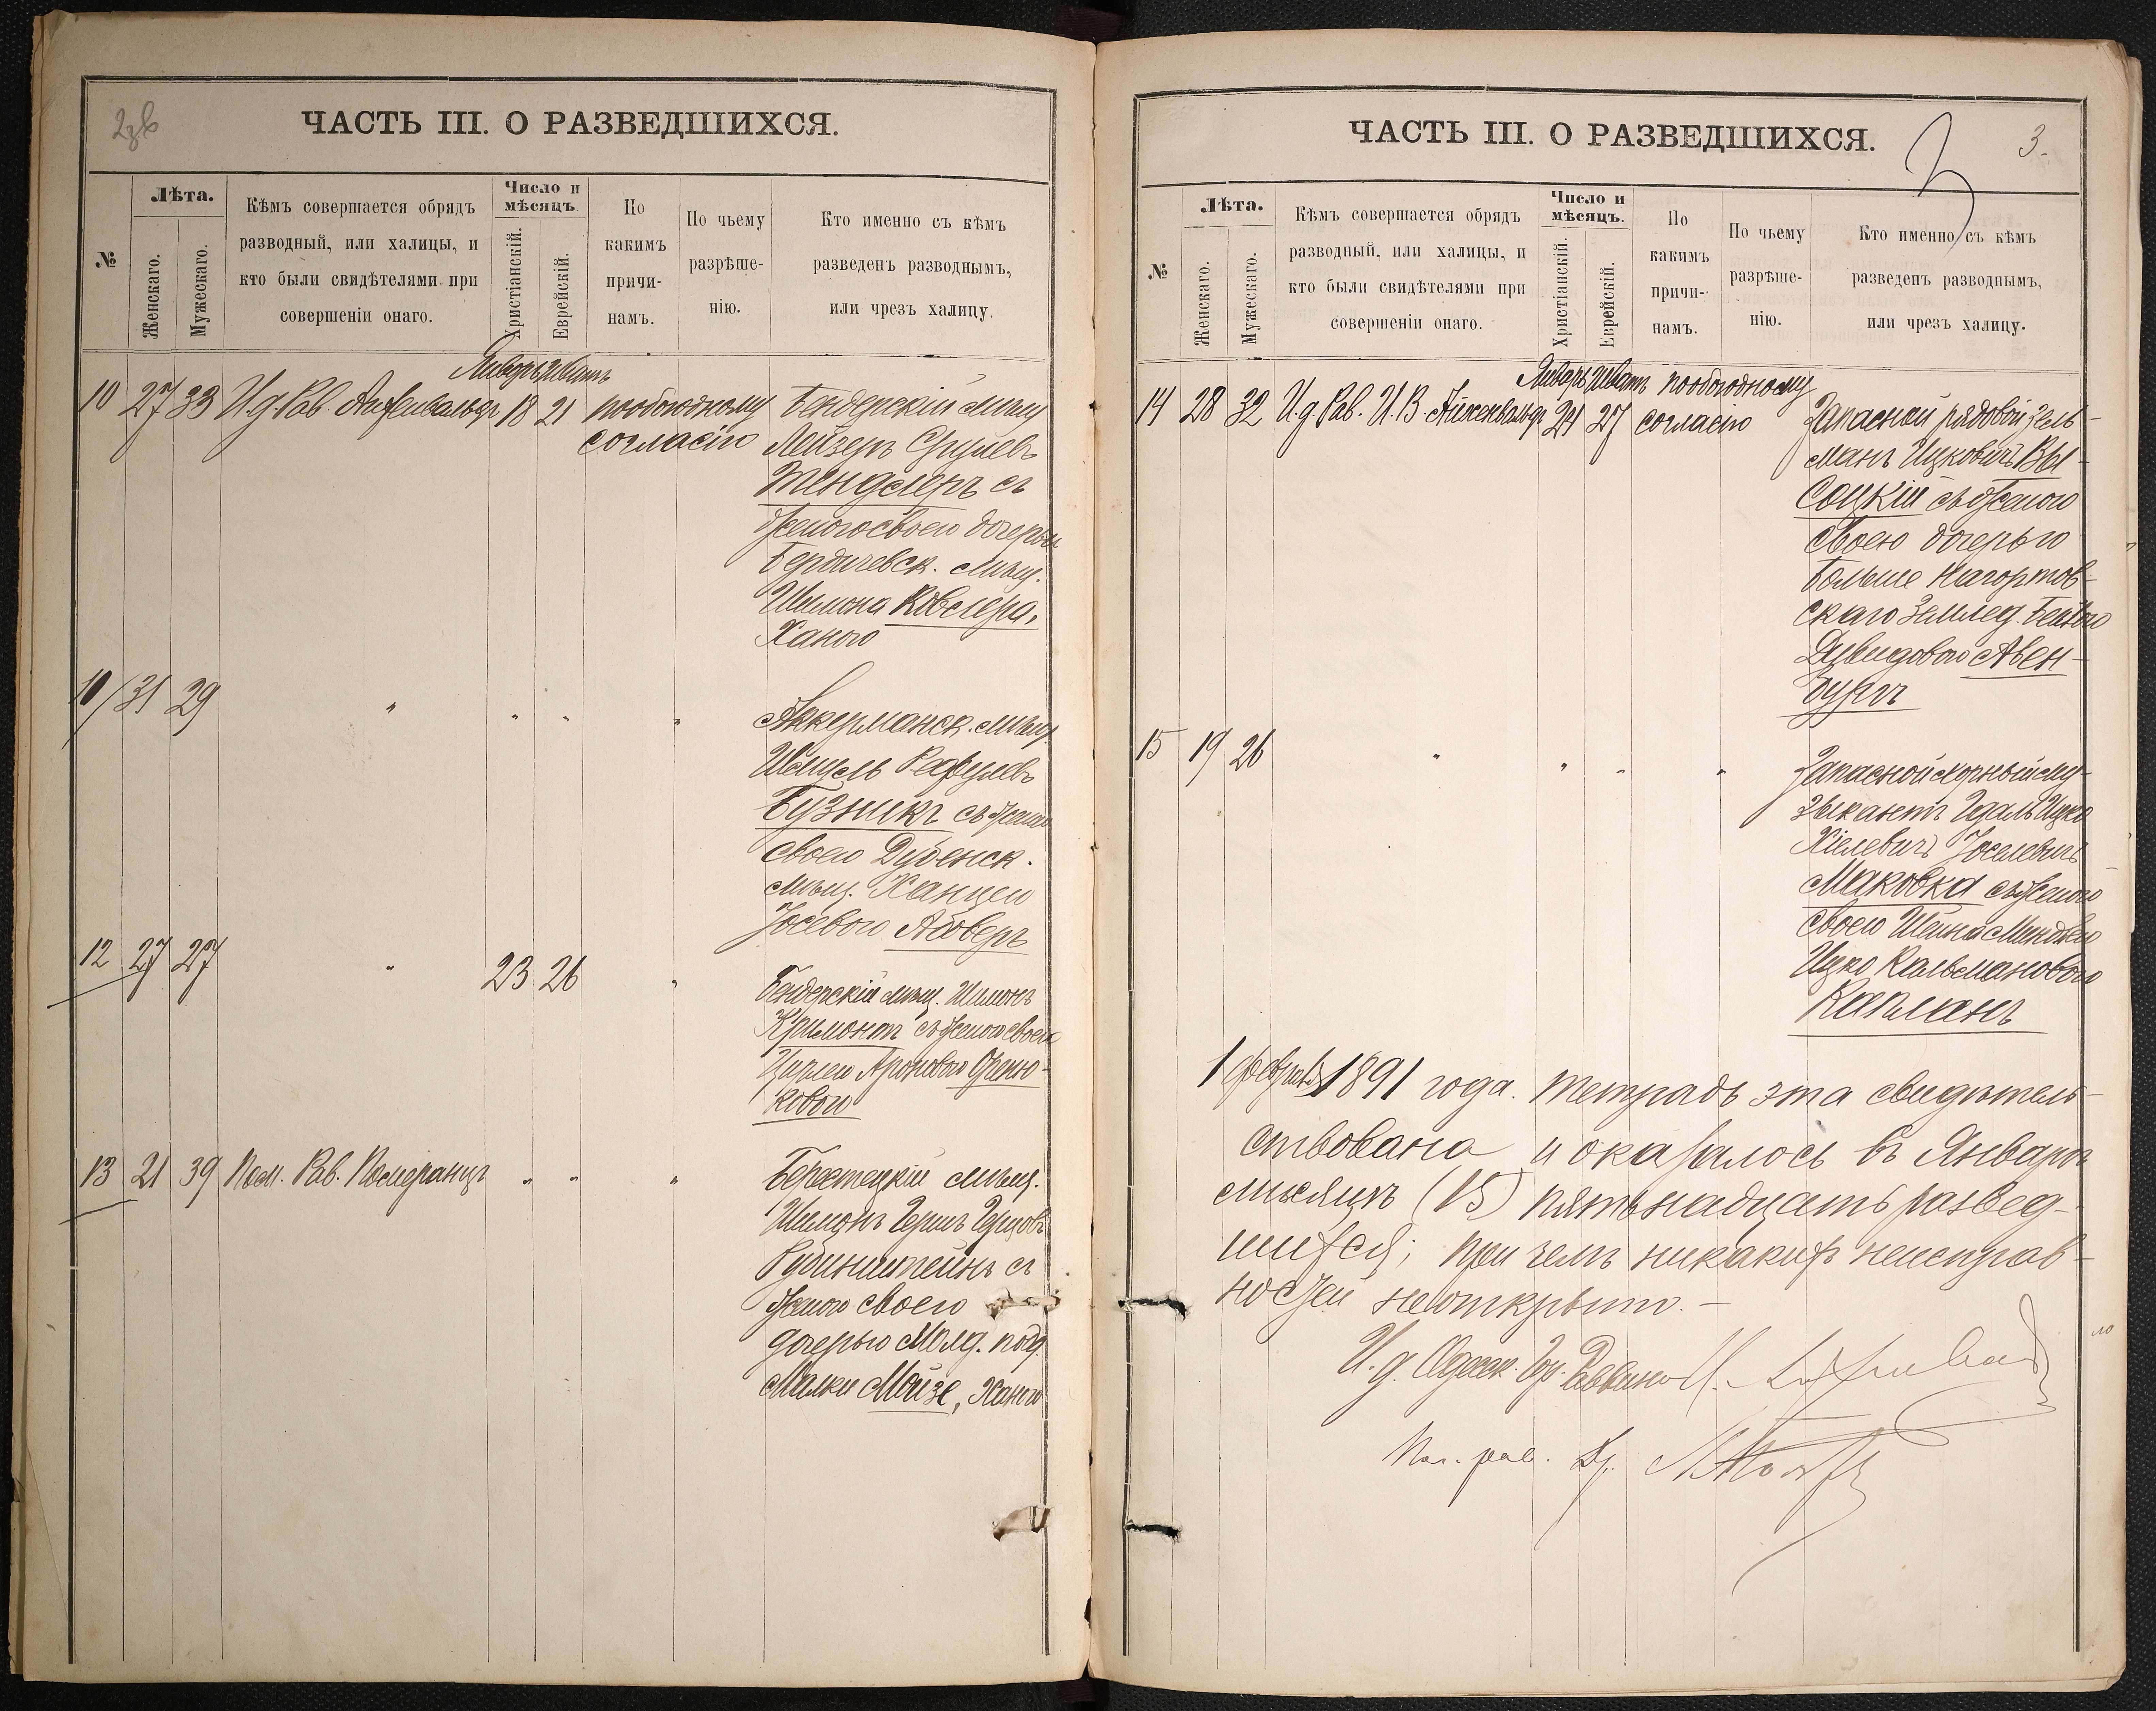 ЧАСТЬ III. О РАЗВЕДШИХСЯ.
№
Лѣта.
Женскаго.
Мужескаго.
Кѣмъ совершается обрядъ
разводный, или халицы, и
кто были свидѣтелями при
совершеніи онаго.
Число и
мѣсяцъ.
Христіанскій.
Еврейскій.
По
какимъ
причи-
намъ.
По чьему
разрѣше-
нію.
Кто именно съ кѣмъ
разведенъ разводнымъ,
или чрезъ халицу.
Январь Шватъ
10 27 33 И.д. Рав. Айзенвальдъ 18 21 пообоюдному
согласію
Бендерскій мѣщ
Лейзеръ Срулевъ
Тендлеръ съ
женою своею дочерью
Бердичевск. мѣщ.
Шимона Ковлера,
Ханою
11 31 29 " " " "
Аккерманск. мѣщ.
Шмуль Рафулевъ
Бузникъ съ женою
своею Дубенск.
мѣщ. Ханцею
Іосевою
12 27 27 " 23 26 "
Бендерскій мѣщ. Шимонъ
Кримонтъ съ женою своею
Цирлею Ароновою
ковою
13 21 39 Пом. Рав. Померанцъ " " "
Берестецкій мѣщ.
Шимонъ Гершъ Герцовъ
Рубинштейнъ съ
женою своею
дочерью Молд. подд.
Малки Мойзе, Ханою
ЧАСТЬ III. О РАЗВЕДШИХСЯ.
3.
№
Лѣта.
Женскаго.
Мужескаго.
Кѣмъ совершается обрядъ
разводный, или халицы, и
кто были свидѣтелями при
совершеніи онаго.
Число и
мѣсяцъ.
Христіанскій.
Еврейскій.
По
какимъ
причи-
намъ.
По чьему
разрѣше-
нію.
Кто именно съ кѣмъ
разведенъ разводнымъ,
или чрезъ халицу.
Январь Шватъ пообоюдному
14 28 32 И.д. Рав. И.В. Айзенвальдъ 24 27 согласію
Запасной рядовой Зель-
манъ Ицковичъ Вы-
соцкій съ женою
своею дочерью
Больше Нагортов-
скаго Землед. Бейлою
Дувидовою Авен-
бургъ
15 19 26 " " " "
Запасной хорный му-
зыкантъ Идаль Ицко
Хіелевичъ Іоселевичъ
Маковка съ женою
своею Шейна Миндлею
Ицко Кальмановою
Капланъ
1 февраля 1891 года. Тетрадь эта свидѣтель-
ствована и оказалось въ Январѣ
мѣсяцѣ (15) пятьнадцать развед-
шихся; при чемъ никакихъ неисправ-
ностей неоткрыто. –
И. д. Одесск. Гор. Раввина
Пом. рав. Др.